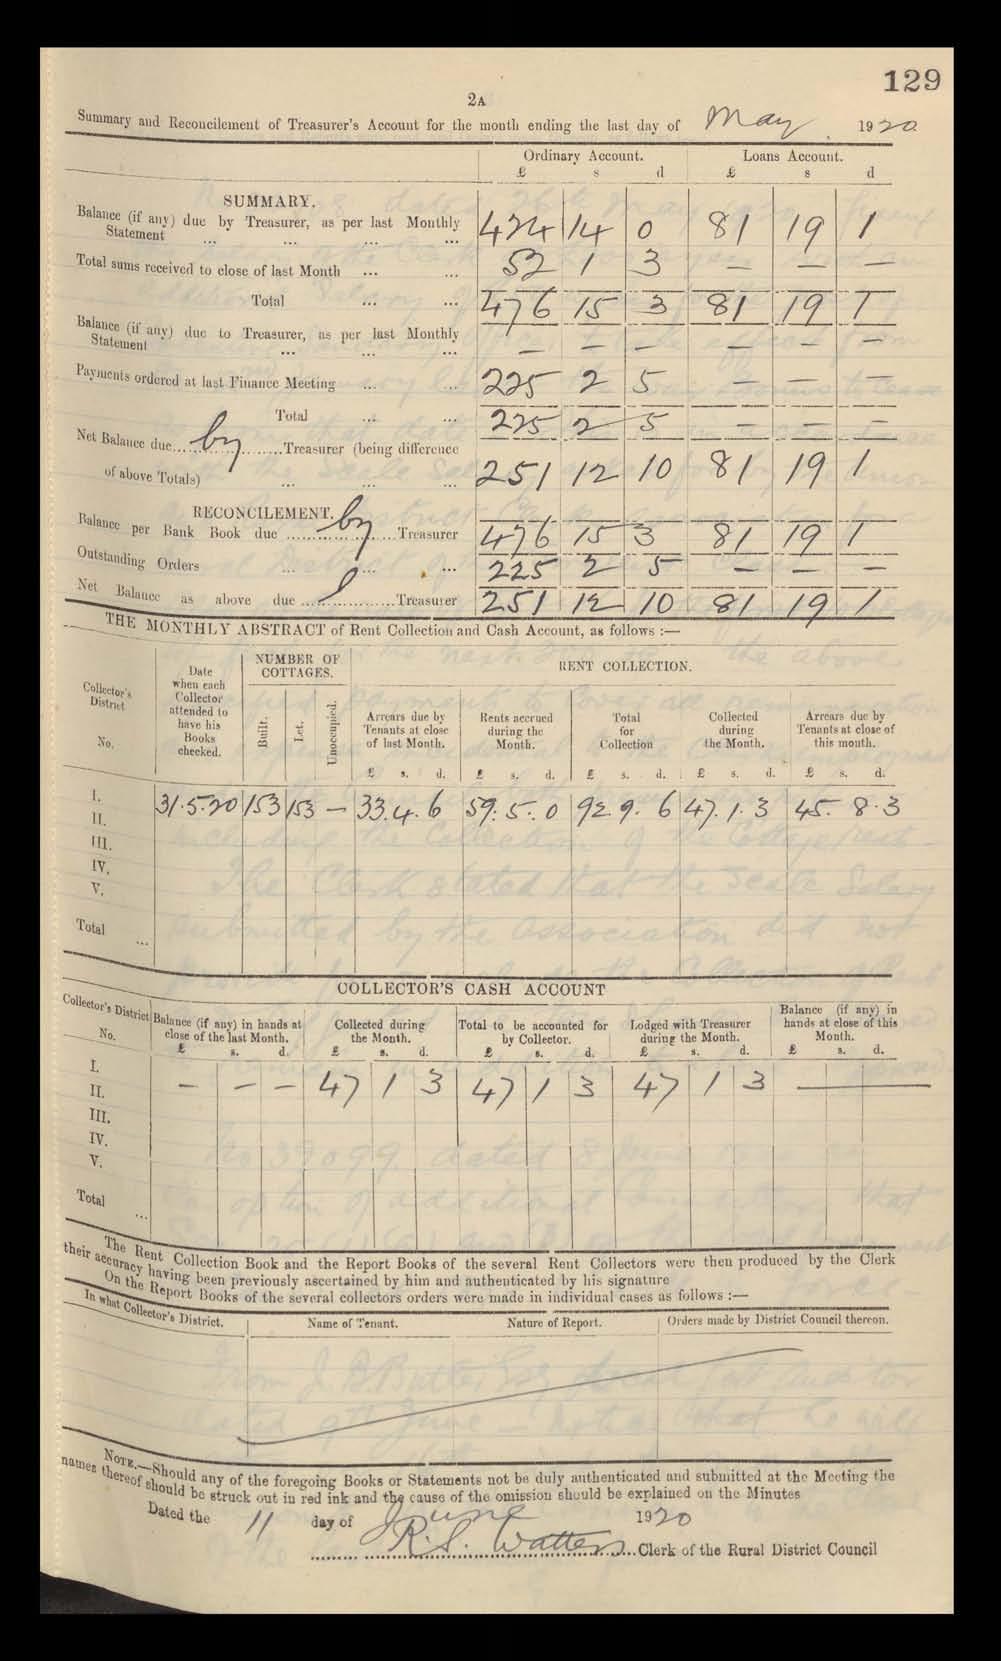 129
2A
Summary and Reconcilement of Treasurer's Account for the month ending the last day of May 1920
Ordinary Account. Loans Account.
£ s d £ s d
SUMMARY.
Balance (if any) due by Treasurer, as per last Monthly
Statement ... ... ... ... 424 14 0 81 19 1
Total sums received to close of last Month ... ... 52 1 3 — — —
Total ... ... 476 15 3 81 19 1
Balance (if any) due to Treasurer, as per last Monthly
Statement ... ... ... — — — — — —
Payments ordered at last Finance Meeting ... ... 225 2 5 — — —
Total ... ... 225 2 5 — — —
Net Balance due... by ...Treasurer (being difference
of above Totals) ... ... ... 251 12 10 81 19 1
RECONCILEMENT.
Balance per Bank Book due ... by ...Treasurer 476 15 3 81 19 1
Outstanding Orders ... ... ... 225 2 5 — — —
Net Balance as above due ... ...Treasurer 251 12 10 81 19 1
THE MONTHLY ABSTRACT of Rent Collection and Cash Account, as follows :—
Collector's District No.
Date when each Collector attended to have his Books checked.
NUMBER OF COTTAGES.
Built. Let. Unoccupied.
RENT COLLECTION.
Arrears due by Tenants at close of last Month.
Rents accrued during the Month.
Total for Collection
Collected during the Month.
Arrears due by Tenants at close of this month.
£ s. d. £ s. d. £ s. d. £ s. d. £ s. d.
I. 31.5.20 153 153 — 33.4.6 59.5.0 92.9.6 47.1.3 45.8.3
II.
III.
IV.
V.
Total ...
COLLECTOR'S CASH ACCOUNT
Collector's District No.
Balance (if any) in hands at close of the last Month.
Collected during the Month.
Total to be accounted for by Collector.
Lodged with Treasurer during the Month.
Balance (if any) in hands at close of this Month.
£ s. d. £ s. d. £ s. d. £ s. d. £ s. d.
I. — — — 47 1 3 47 1 3 47 1 3 —
II.
III.
IV.
V.
Total ...
The Rent Collection Book and the Report Books of the several Rent Collectors were then produced by the Clerk
their accuracy having been previously ascertained by him and authenticated by his signature
On the Report Books of the several collectors orders were made in individual cases as follows :—
In what Collector's District. Name of Tenant. Nature of Report. Orders made by District Council thereon.
NOTE.—Should any of the foregoing Books or Statements not be duly authenticated and submitted at the Meeting the
names thereof should be struck out in red ink and the cause of the omission should be explained on the Minutes
Dated the 11 day of June 1920
R. S. Watters Clerk of the Rural District Council